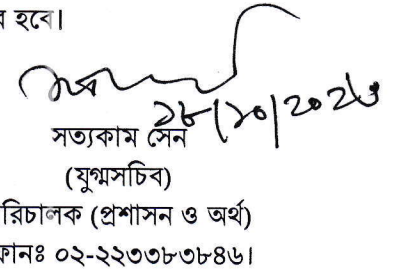 হবে।
১৮/১০/২০২৩
সত্যকাম সেন
(যুগ্মসচিব)
রিচালক (প্রশাসন ও অর্থ)
ফোনঃ ০২-২২৩৩৮৩৮৪৬।